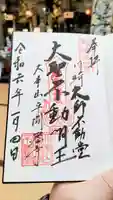 奉拝
川崎大師不動堂
大聖不動明王
大本山平間寺
令和六年一月四日